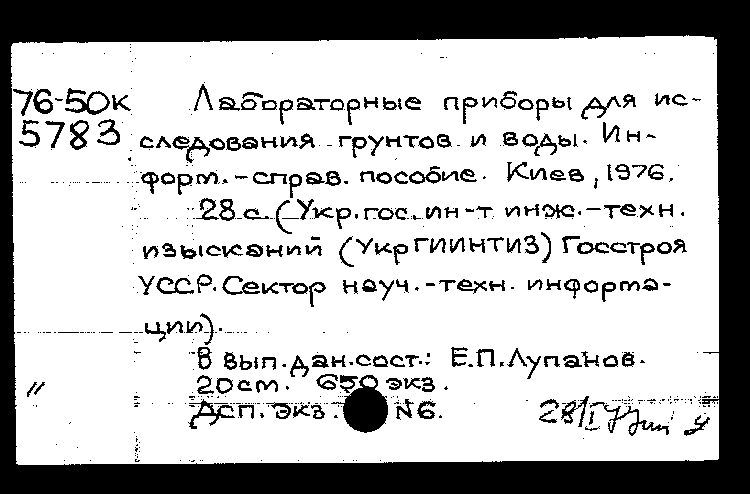 76-50к
5783
Лабораторные приборы для ис-
следования грунтов и воды. Ин-
форм.-справ. пособие. Киев, 1976.
28 с. (Укр. гос. ин-т инж.-техн.
изысканий (УкрГИИНТИЗ) Госстроя
УССР. Сектор науч.-техн. информа-
ции).
В вып. дан. сост.: Е.П. Лупанов.
20 см. 650 экз.
〃
Дсп. экз. N6.
28/I